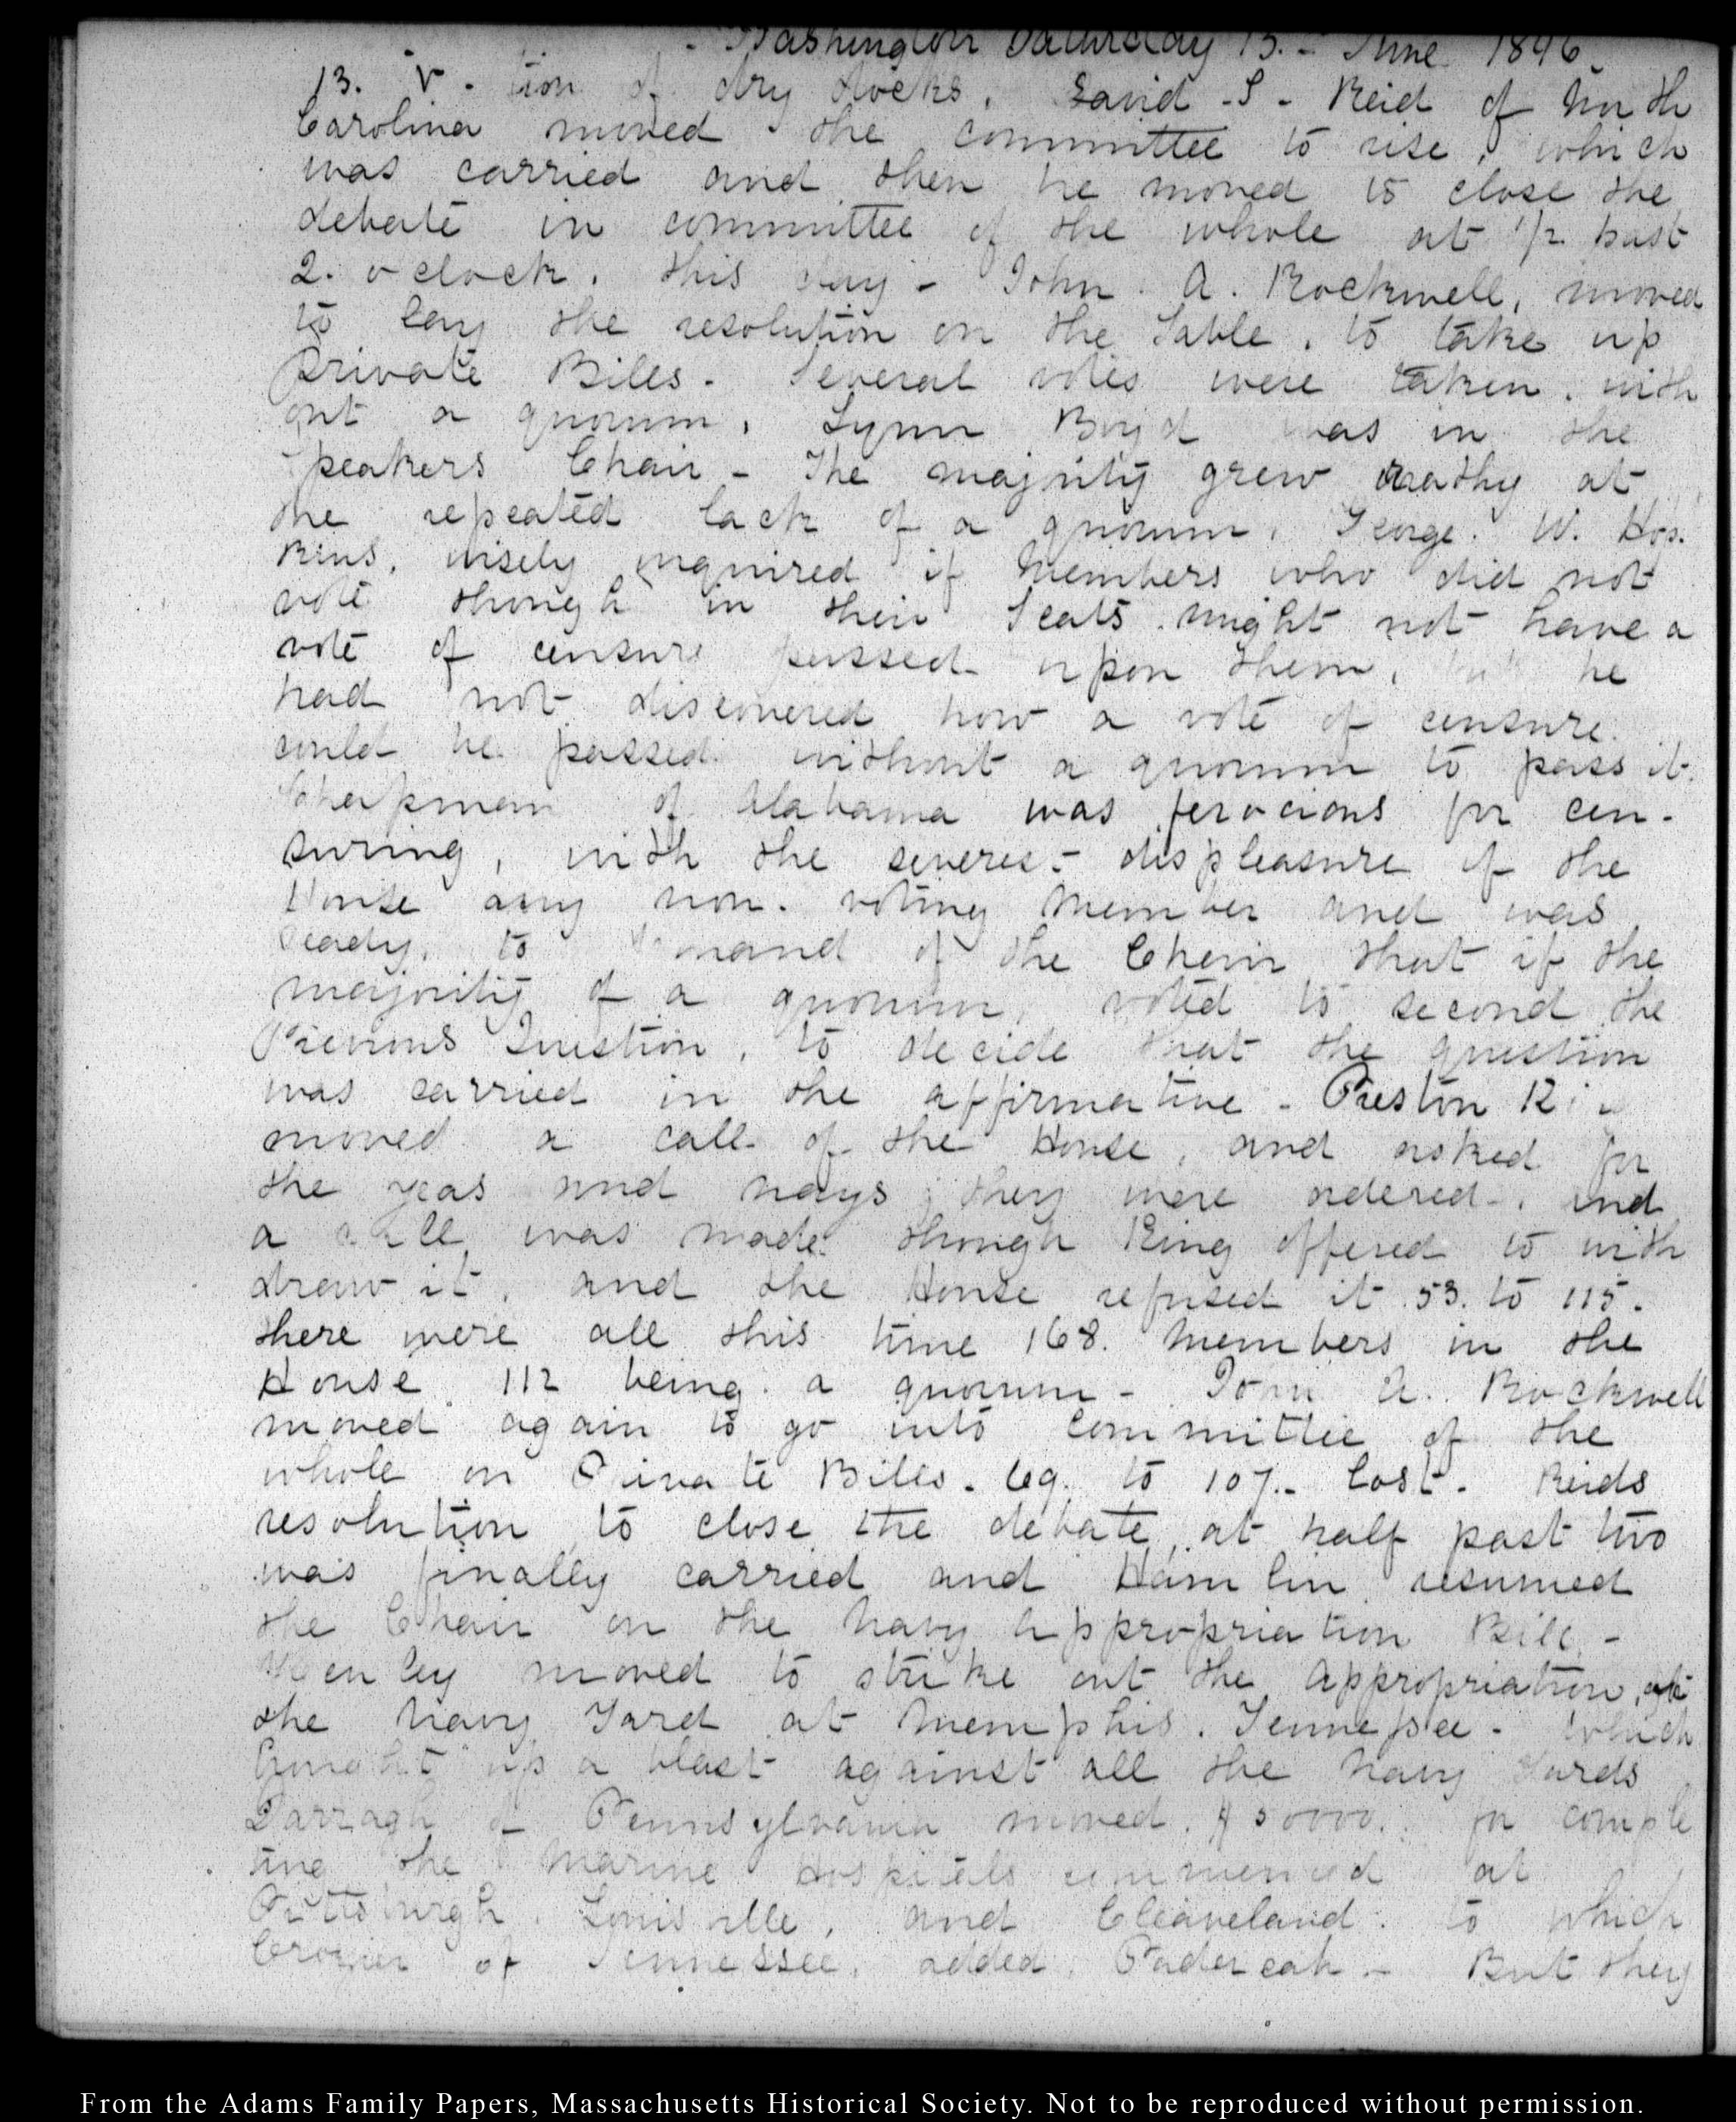 Washington Saturday 13. - June 1846.
13. V. tion of dry docks. David - S - Reid of North
Carolina moved the committee to rise, which
was carried and then he moved to close the
debate in committee of the whole at 1/2 past
2. o clock. this day - John. A. Rockwell, moved
to lay the resolution on the table, to take up
Private Bills. Several votes were taken. with
out a quorum. Lynn Boyd was in the
Speakers Chair - The majority grew wrathy at
the repeated lack of a quorum. George. W. Hop.
kins, wisely inquired if Members who did not
vote though in their Seats. might not have a
vote of censure passed upon them, but he
had not discovered how a vote of censure.
could be passed. without a quorum to pass it.
Chapman of Alabama was ferocious for cen-
suring, with the severest displeasure of the
House any non. voting Member and was
ready, to demand of the Chair that if the
majority of a quorum, voted to second the
Previous Question, to decide that the question
was carried in the affirmative - Preston King
moved a call of the House, and asked for
the yeas and nays, they were ordered. and
a call was made. though King offered to with
draw it, and the House refused it 53. to 115.
there were all this time 168. Members in the
House 112 being a quorum - John A. Rockwell
moved again to go into Committee of the
whole on Private Bills. 69. to 107. - lost. Reids
resolution to close the debate, at half past two
was finally carried and Hamlin resumed
the Chair on the Navy Appropriation Bill, -
Henley moved to strike out the Appropriation, at
the Navy Yard at Memphis. Tennessee - which
brought up a blast against all the Navy Yards
Darragh of Pennsylvania moved. $50000. for comple
ting the Marine Hospitals commenced at
Pittsburgh. Louisville, and Cleaveland. to which
Crozier of Tennessee, added, Paducah - But they
From the Adams Family Papers, Massachusetts Historical Society. Not to be reproduced without permission.